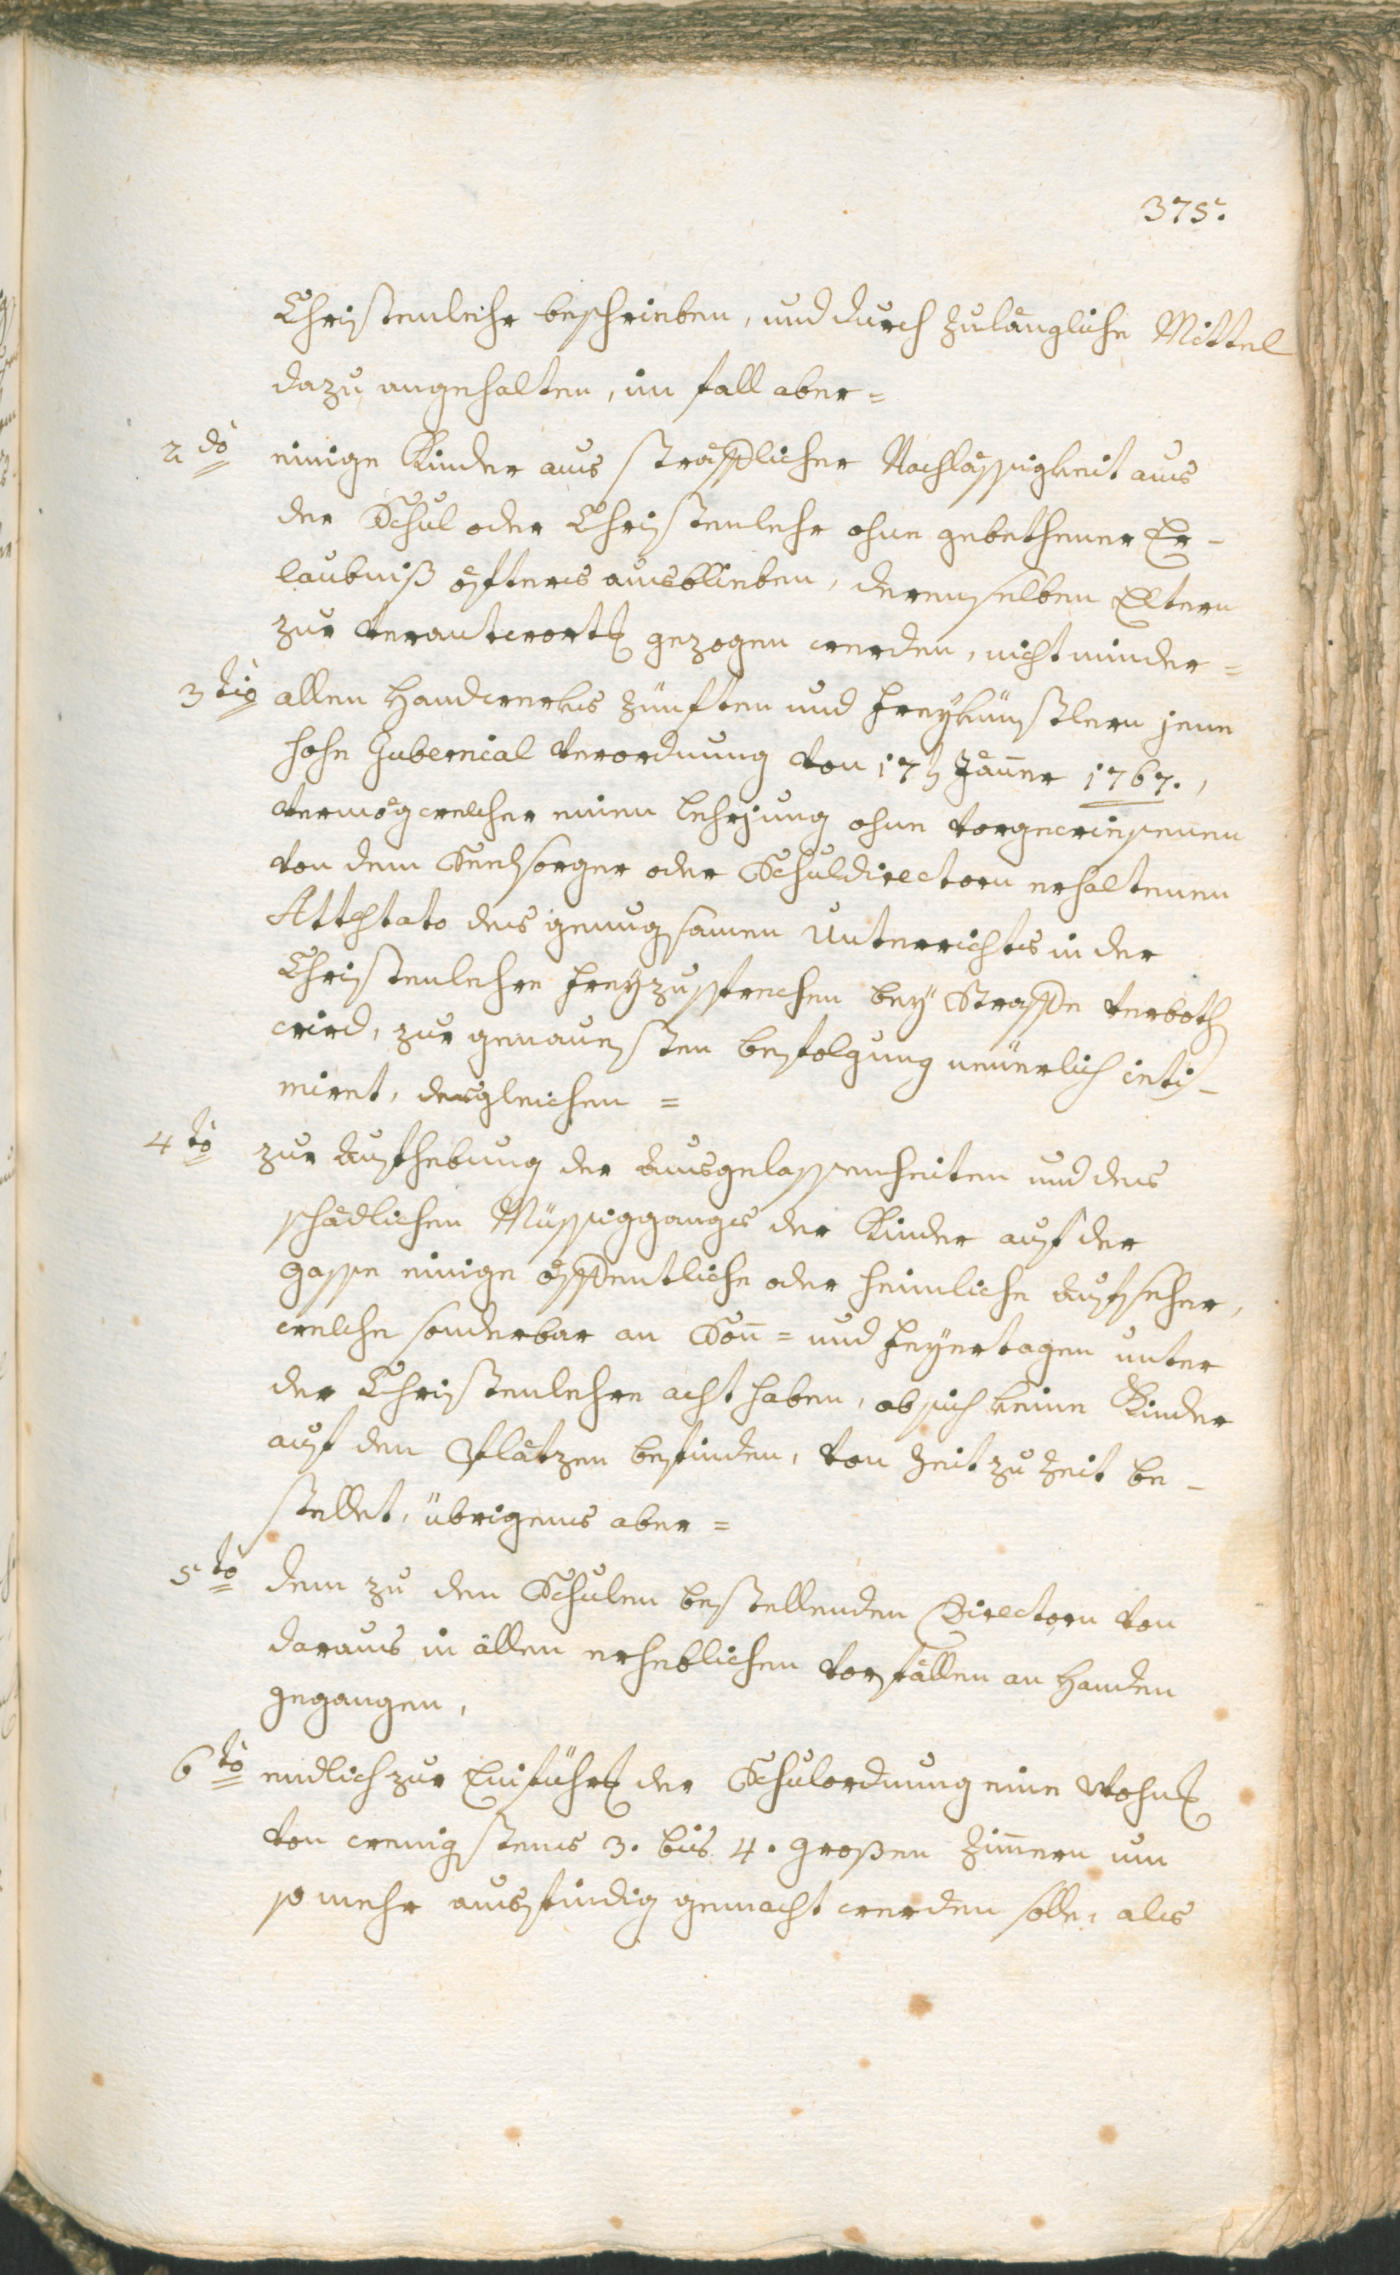 375.
Christenlehr beschrieben, und durch zulängliche Mittel
dazu angehalten, im fall aber =
2do einige Kinder aus sträfflicher Nachlässigkeit aus
der Schul oder Christenlehr ohne gebethener Er-
laubniß öfters ausblieben, derenselben Eltern
zur Verantwort gezogen werden, nicht minder =
3tio allen Handwerks Zünften und Freykünstlern jene
hohe Gubernial Verordnung von 17 Jäner 1767.,
Vermög welcher einen Lehrjung ohne Vorgewiesenen
von dem Seelsorger oder Schuldirectorn erhaltenen
Attestato des genugsamen Unterrichts in der
Christenlehre freyzusprechen bey Straffe verboth
wird, zur genauesten befolgung neüerlich inti-
miret, desgleichen =
4to zur Aufhebung der Ausgelassenheiten und des
schädlichen Müssiggangs der Kinder auf der
Gasse einige öffentliche oder heimliche Aufseher,
welche sonderbar an Son = und Feyertagen unter
der Christenlehre acht haben, ob sich keine Kinder
auf den Plätzen befinden, von Zeit zu Zeit be-
stellet, übrigens aber =
5to dem zu den Schulen bestellenden Directorn von
daraus in allen erheblichen Vorfällen an Handen
gegangen,
6to endlich zur Einführ der Schulordnung eine Wohn
von wenigstens 3. bis 4. großen Zimern um
so mehr ausfindig gemacht werden solle, als